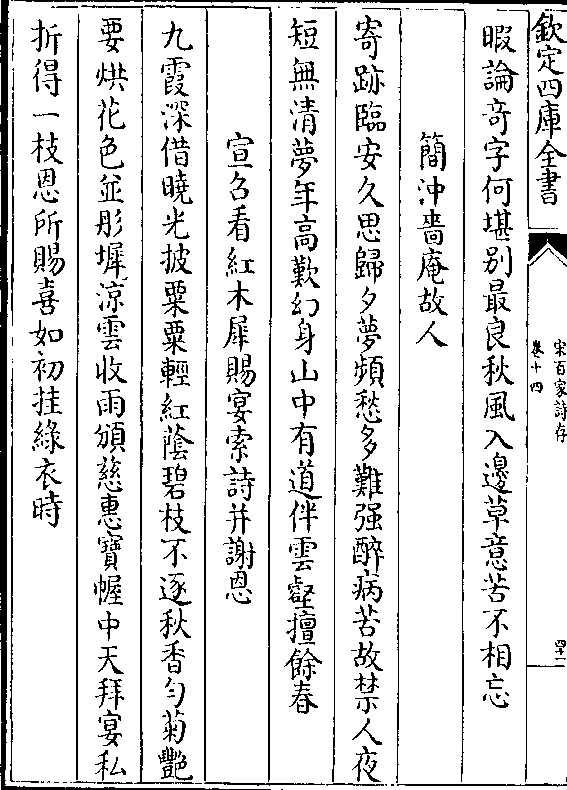 欽定四庫全書
宋百家詩存
卷十四
暇論奇字何堪别最良秋風入邊草意苦不相忘
簡沖嗇庵故人
寄跡臨安久思歸夕夢頻愁多難强醉病苦故禁人夜
短無清夢年高歎幻身山中有道伴雲壑擅餘春
宣名看紅木犀賜宴索詩并謝恩
九霞深借曉光披粟粟輕紅蔭碧枝不逐秋香勻菊艷
要烘花色並彤墀凉雲收雨頒慈惠寳幄中天拜宴私
折得一枝恩所賜喜如初挂緑衣時